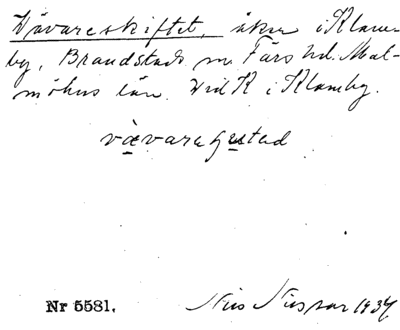 Vävareskiftet, åker i Klam-
by, Brandstads sn Färs hd. Mal-
möhus län. Vid K i Klamby.
vävara
Nr 5581.
Nils Nilsson 1934